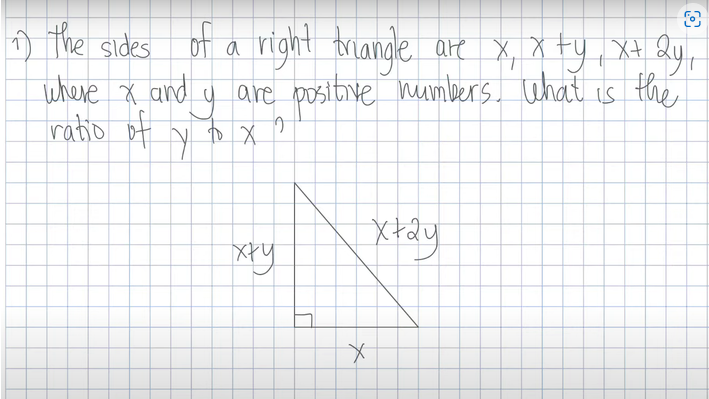 1) The sides of a right triangle are x, x+y, x+2y,
where x and y are positive numbers. What is the
ratio of y to x?
x+y
x+2y
x